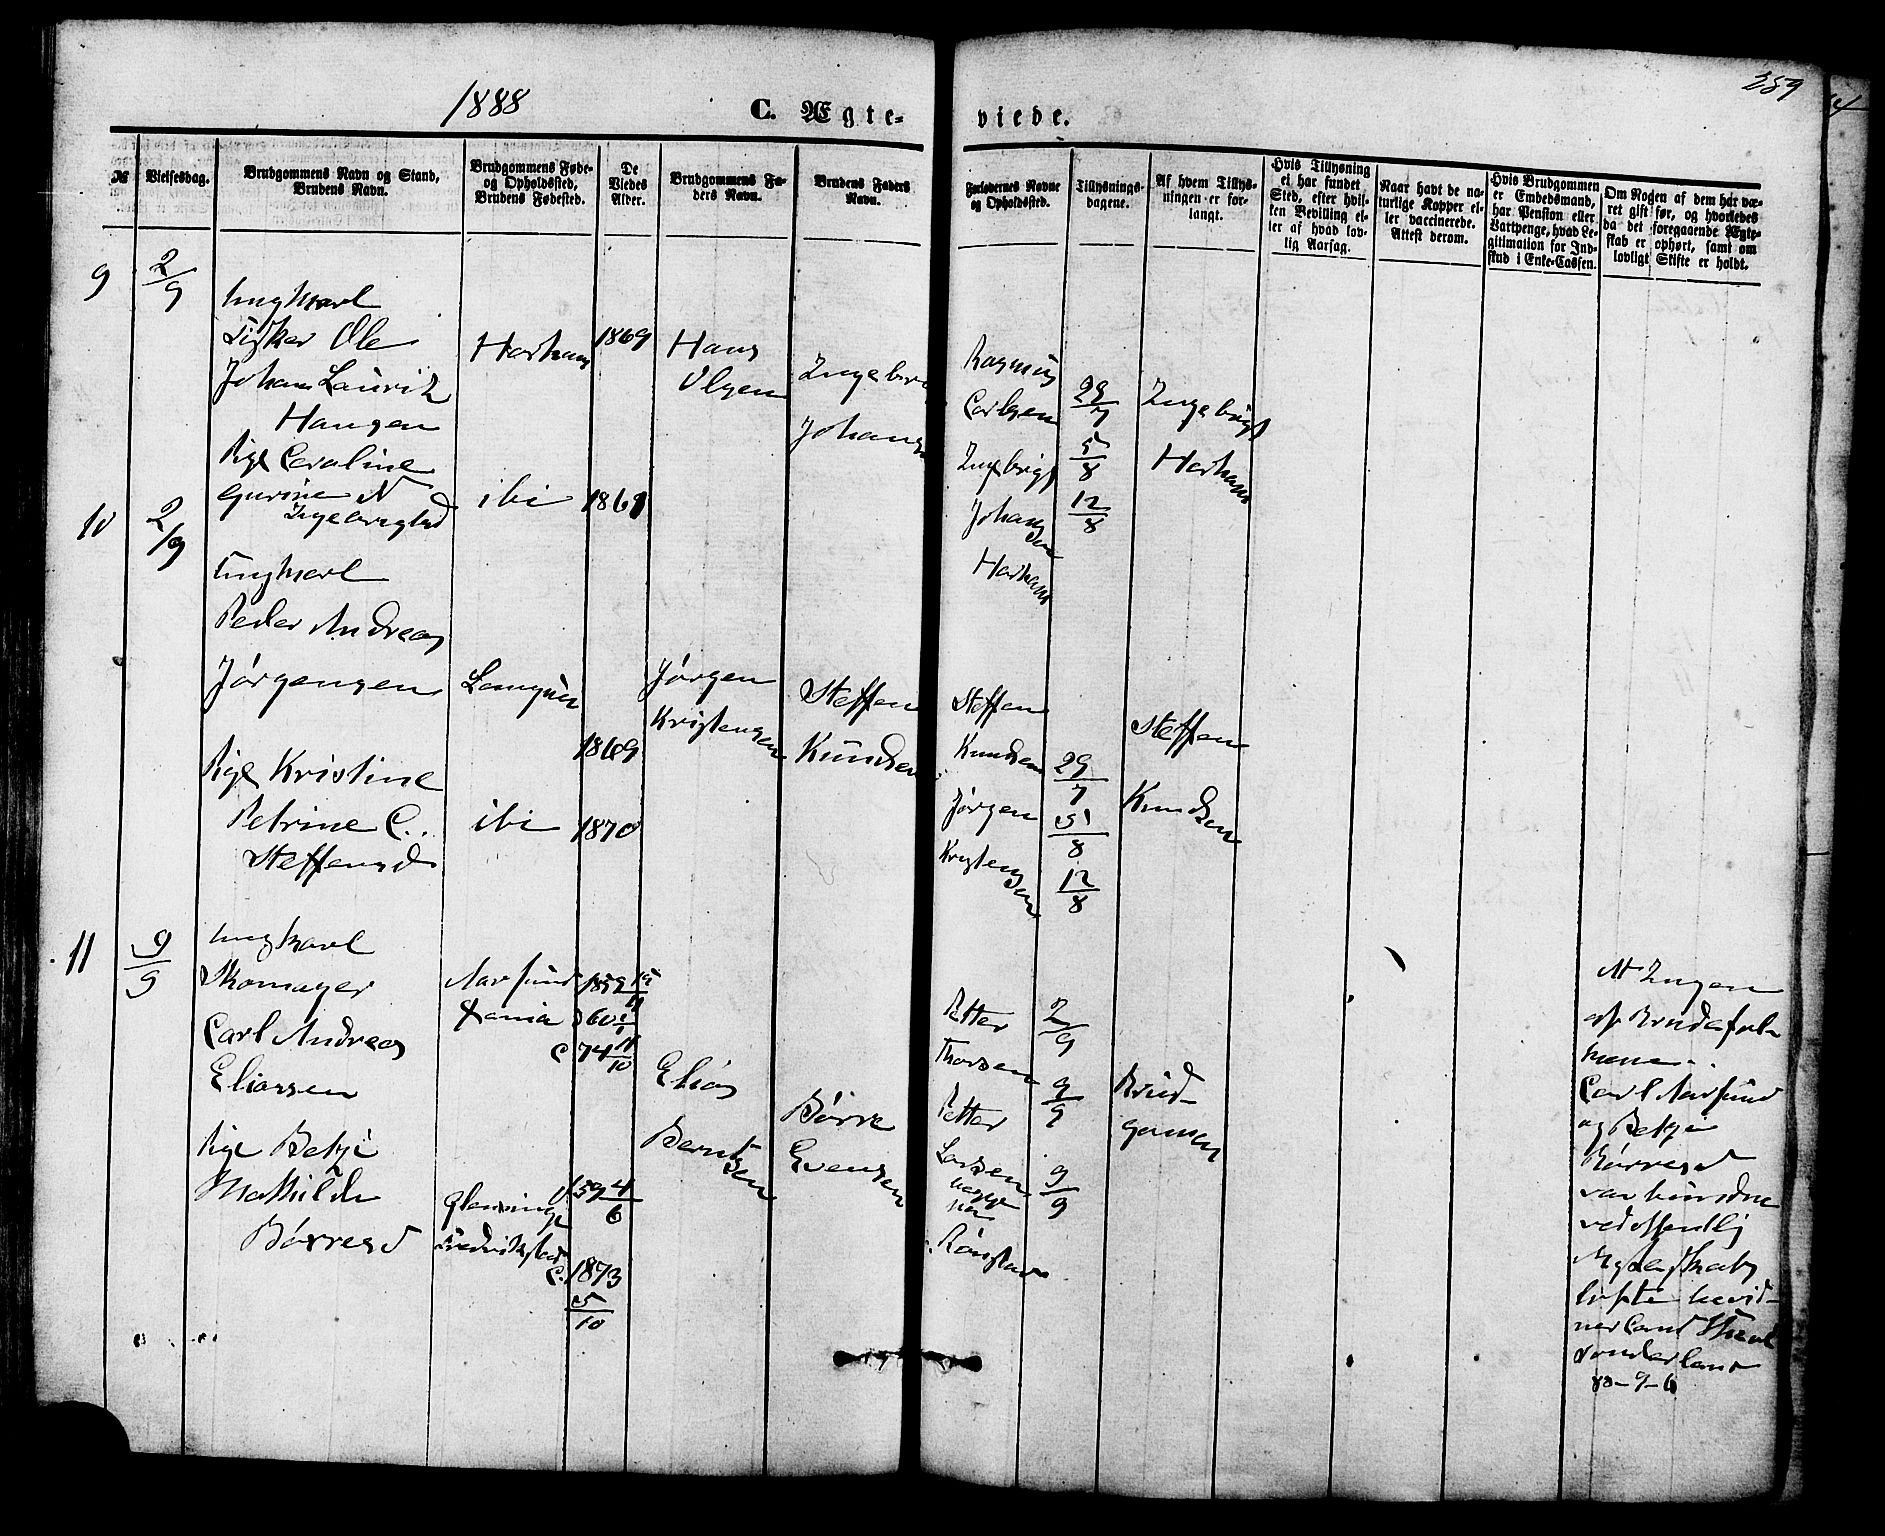 1888
C. Ægte-
viede.
259
№
Vielsesdag.
Brudgommens Navn og Stand,
Brudens Navn.
Brudgommens Føde-
og Opholdssted,
Brudens Fødested.
De
Viedes
Alder.
Brudgommens Fa-
ders Navn.
Brudens Faders
Navn.
Forlovernes Navne
og Opholdssted.
Tillysnings-
dagene.
Af hvem Tillys-
ningen er for-
langt.
Hvis Tillysning
ei har fundet
Sted, efter hvil-
ken Bevilling el-
ler af hvad lov-
lig Aarsag.
Naar havt de na-
turlige Kopper el-
ler vaccinerede.
Attest derom.
Hvis Brudgommen
er Embedsmand,
har Pension eller
Vartpenge, hvad Le-
gitimation for Ind-
skud i Enke-Cassen.
Om Nogen af dem har væ-
ret gift før, og hvorledes
da det foregaaende Ægte-
skab er ophørt, samt om
lovligt Skifte er holdt.
9
2/9
Ungkarl
Fisker Ole
Johan Lauritz
Hansen
Pige Caroline
Gurine N
Ingebrigtsd
Harhams
ibi
1869
1861
Hans
Olsen
Johans
Rasmus
Carlsen
Ingebrigt
Johan
sen
Harhams
29/7
5/8
12/8
Ingebrigt
Harhams
10
2/9
Ungkarl
Peder Andreas
Jørgensen
Pige Kristine
Petrine C.
Steffensd
ibi
1869
1870
Jørgen
Kristensen
Steffen
Knudsen
Steffen
Knudsen
Jørgen
Kristen
sen
29/7
5/8
12/8
Steffen
Knudsen
11
9/9
Ungkarl
Skomager
Carl Andreas
Eliassen
Pige Betzi
Mathilde
Børresd
Aarsund
Glemminge
Fredrikstad
1859
60
C. 74
59 4/6
C. 1873
5/10
Elias
Bernt
sen
Børre
Evensen
Petter
Thorsen
Petter
Larsen
begge
Rønstad
2/9
9/9
9/9
Brud-
gomen
At Ingen
af Brudefol-
kene
Carl Aarsund
og Betzi
Børresd
var
ved offentlig
lovste bevid-
ner Cand
88-9-6